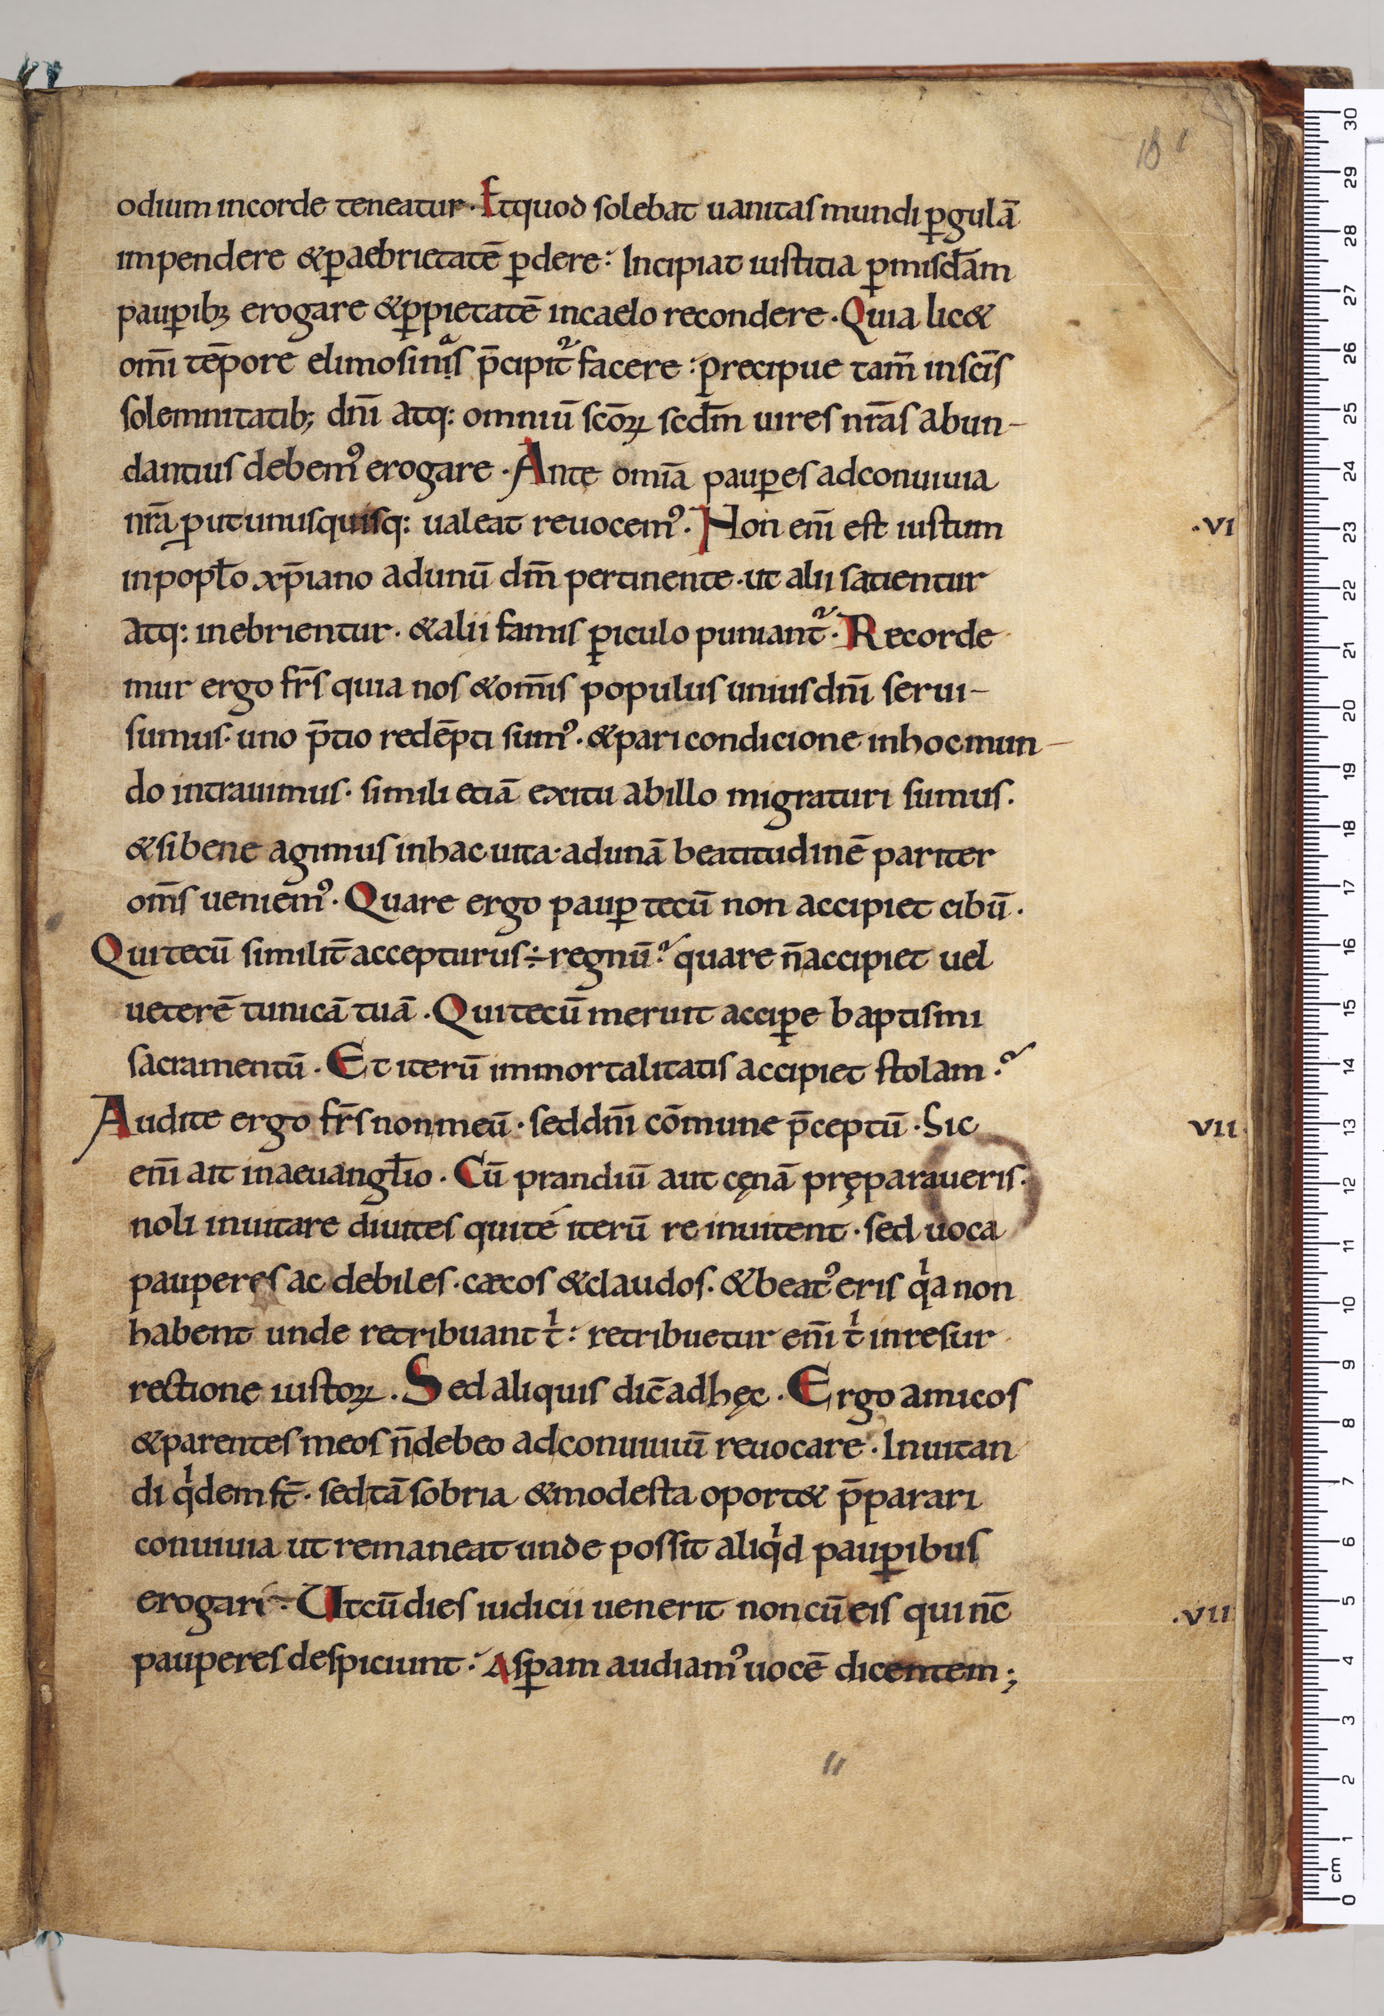 11
odium incorde teneatur. Etquod solebat uanitas mundi ꝑgulā
impendere &ꝑaebrietatē ꝑdere: Incipiat iustitia ꝑmiscd̄iam
pauꝑibꝫ erogare &ꝑpietatē incaelo recondere. Quia lic&
om̄i tēpore elimosinas p̄cipit᷑ facere: precipue tam̄ insc̄is
solemnitatib; dn̄i atq: omniū sc̄oꝝ scd̄m uires nr̄as abun-
dantius debem᾿ erogare. Ante omīa pauꝑes adconuiuia
nr̄a ꝓut unusquisq: ualeat reuocem᾿. Non en̄i est iustum
inpopl̄o xp̄iano adunū dm̄ pertinente. ut alii satientur
atq: inebrientur. &alii famis ꝑiculo puniant᷑. Recorde
mur ergo fr̄s quia nos &om̄is populus unius dn̄i serui-
sumus. uno p̄tio redēpti sum᾿. &pari condicione inhoc mun-
do intrauimus. simili etiā exitu abillo migraturi sumus.
&sibene agimus inhac uita. adunā beatitudinē pariter
om̄s ueniem᾿. Quare ergo pauꝑ tecū non accipiet cibū.
Qui tecū similit̄ accepturus ÷ regnū? quare n̄ accipiet uel
ueterē tunicā tuā. Qui tecū meruit acciꝑe baptismi
sacramentū. Et iterū immortalitatis accipiet stolam?
Audite ergo fr̄s non meū. sed dn̄i cōmune p̄ceptū. Sic
en̄i ait inaeuangl̄io. Cū prandiū aut cęnā pręparaueris.
noli inuitare diuites qui té iterū re inuitent. sed uoca
pauperes ac debiles. cæcos &claudos. &beat᾿ eris qͥa non
habent unde retribuant tͥ: retribuetur en̄i tͥ inresur
rectione iustoꝝ. Sed aliquis dic̄ adhęc. Ergo amicos
&parentes meos n̄ debeo adconuiuiūi reuocare. Inuitan
di qͥdem st̄. sed tā sobria &modesta oport& p̄parari
conuiuia ut remaneat unde possit aliqͥd pauꝑibus
erogari. Ut cū dies iudicii uenerit non cū eis qui nc̄
pauperes despiciunt: Asꝑam audiam᾿ uocē dicentem;
.VI
VII.
.VII